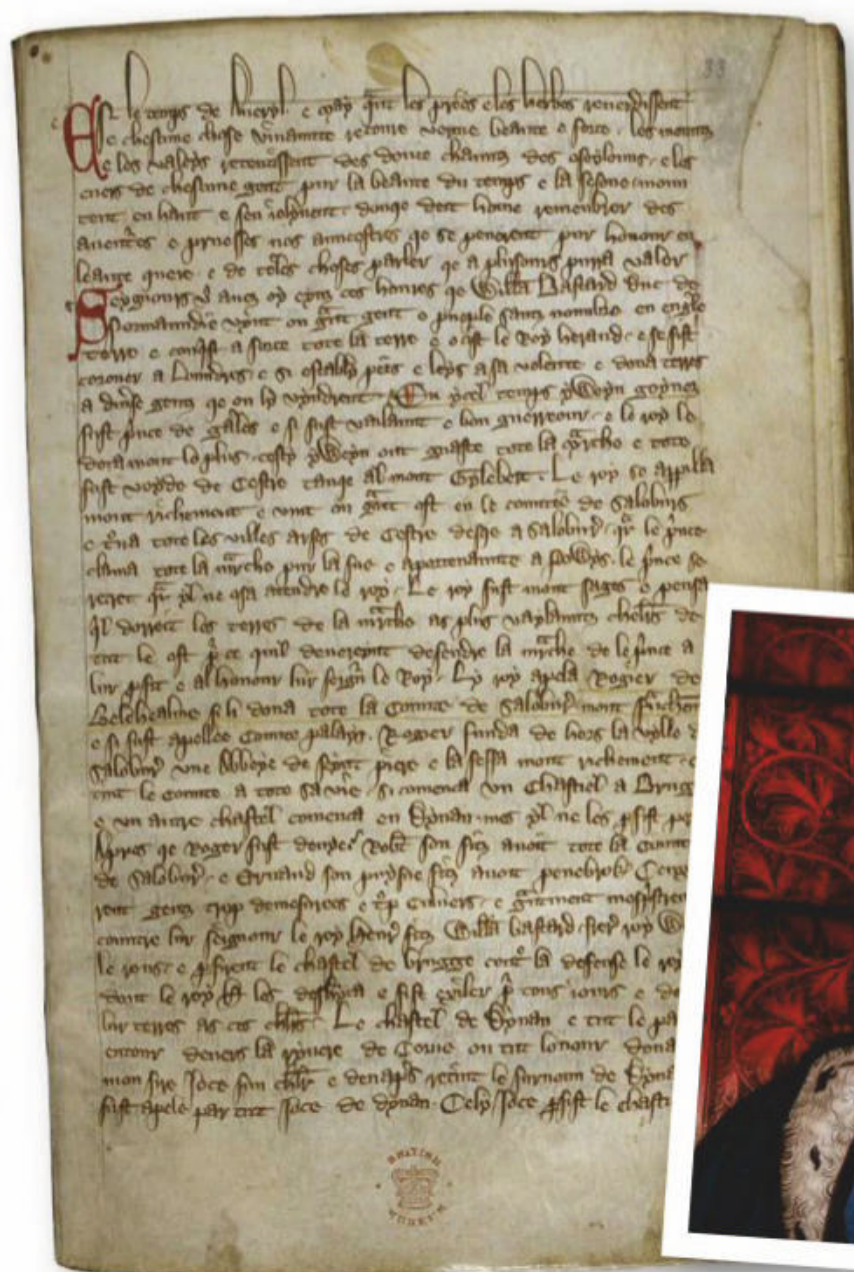 33
En le temps de Averyl e may qnt les prees e les herbes reverdissent
e chescune chose vivaunte recovre vertue beaute e force les mountz
e les valeys retentissent des douce chauntz des oseylouns e les
cuers de chescune gent pur la beaute du temps e la sesone moun
tent en haut e sen jolyvent donqe deit home remenbrer des
aventres e pruesses nos auncestres qe se penerent pur honour en
leaute quere e de teles choses parler qe a plusours purra valer
Seygnours vs avez oy eynz ces houres qe Willā Bastard duc de
Normaundie vynt ou gnt gent e pueple santz nonbre en engle
terre e conqist a force tote la terre e ocist le Roy heraud e se fist
coroner a Loundres e si estably pees e leys a sa volente e dona terres
a diverse gentz qe ou ly vyndrent En ycel temps yWeyn goynez
fust prince de Gales e si fust vailaunt e bon guerreour e le roy le
dota mont le plus cesty yWeyn out guaste tote la marche e tote
fust voyde de Cestre tanqe al mont Gylebert Le roy se appilā
mout richement e vint ou grant ost en le countee de Salobur
e trova tote les villes arses de Cestre desqe a Salobur qr le prince
clama tote la marche pur la sue e apurtenaunte a Powys le prince se
retret qr yl ne osa atendre le roy Le roy fust mout sages e pensa
ql dorreit les terres de la marche as plus vaylauntz chelrs de
tut le ost pr ce quil devereynt defendre la marche de le prince a
lur pfit e al honour lur seign le Roy Ly roy apela Rogier de
Belehealme si li dona tote la Counte de Salobur mout franchem
e si fust apellee Counte palays Rogier funda de hors la vylle d
Salobur une Abbeye de seynt piere e la feffa mout richement e
tint le Counte a tote sa vie Si comenca un Chastiel a Brugg
e un autre chastel comenca en Dynan mes yl ne les pfist p
Apres qe Roger fust devyee Robt son fitz avoit tote la Counte
de Salobur e Ernaud son puysne fitz avoit penebrok
rent gentz trop demesurees e trop culvers e grantment mespristrent
countre lur seignour le roy Henr fitz Willā bastard frer roy W
le rous e pfirent le chastel de brugge contr la defense le roy
dont le roy H les desheryta e fist exiler pr tous jours e do
lur terres as ces chlrs Le chastel de Dynan e tut le pa
entour devers la ryvere de Corve ou tut lonour dona
mon sire Joce son chlr e denaprs retint le surnoun de Dyna
fust apele par tut Joce de dynan Cely Joce pfist le chast
BRITISH
MUSEUM